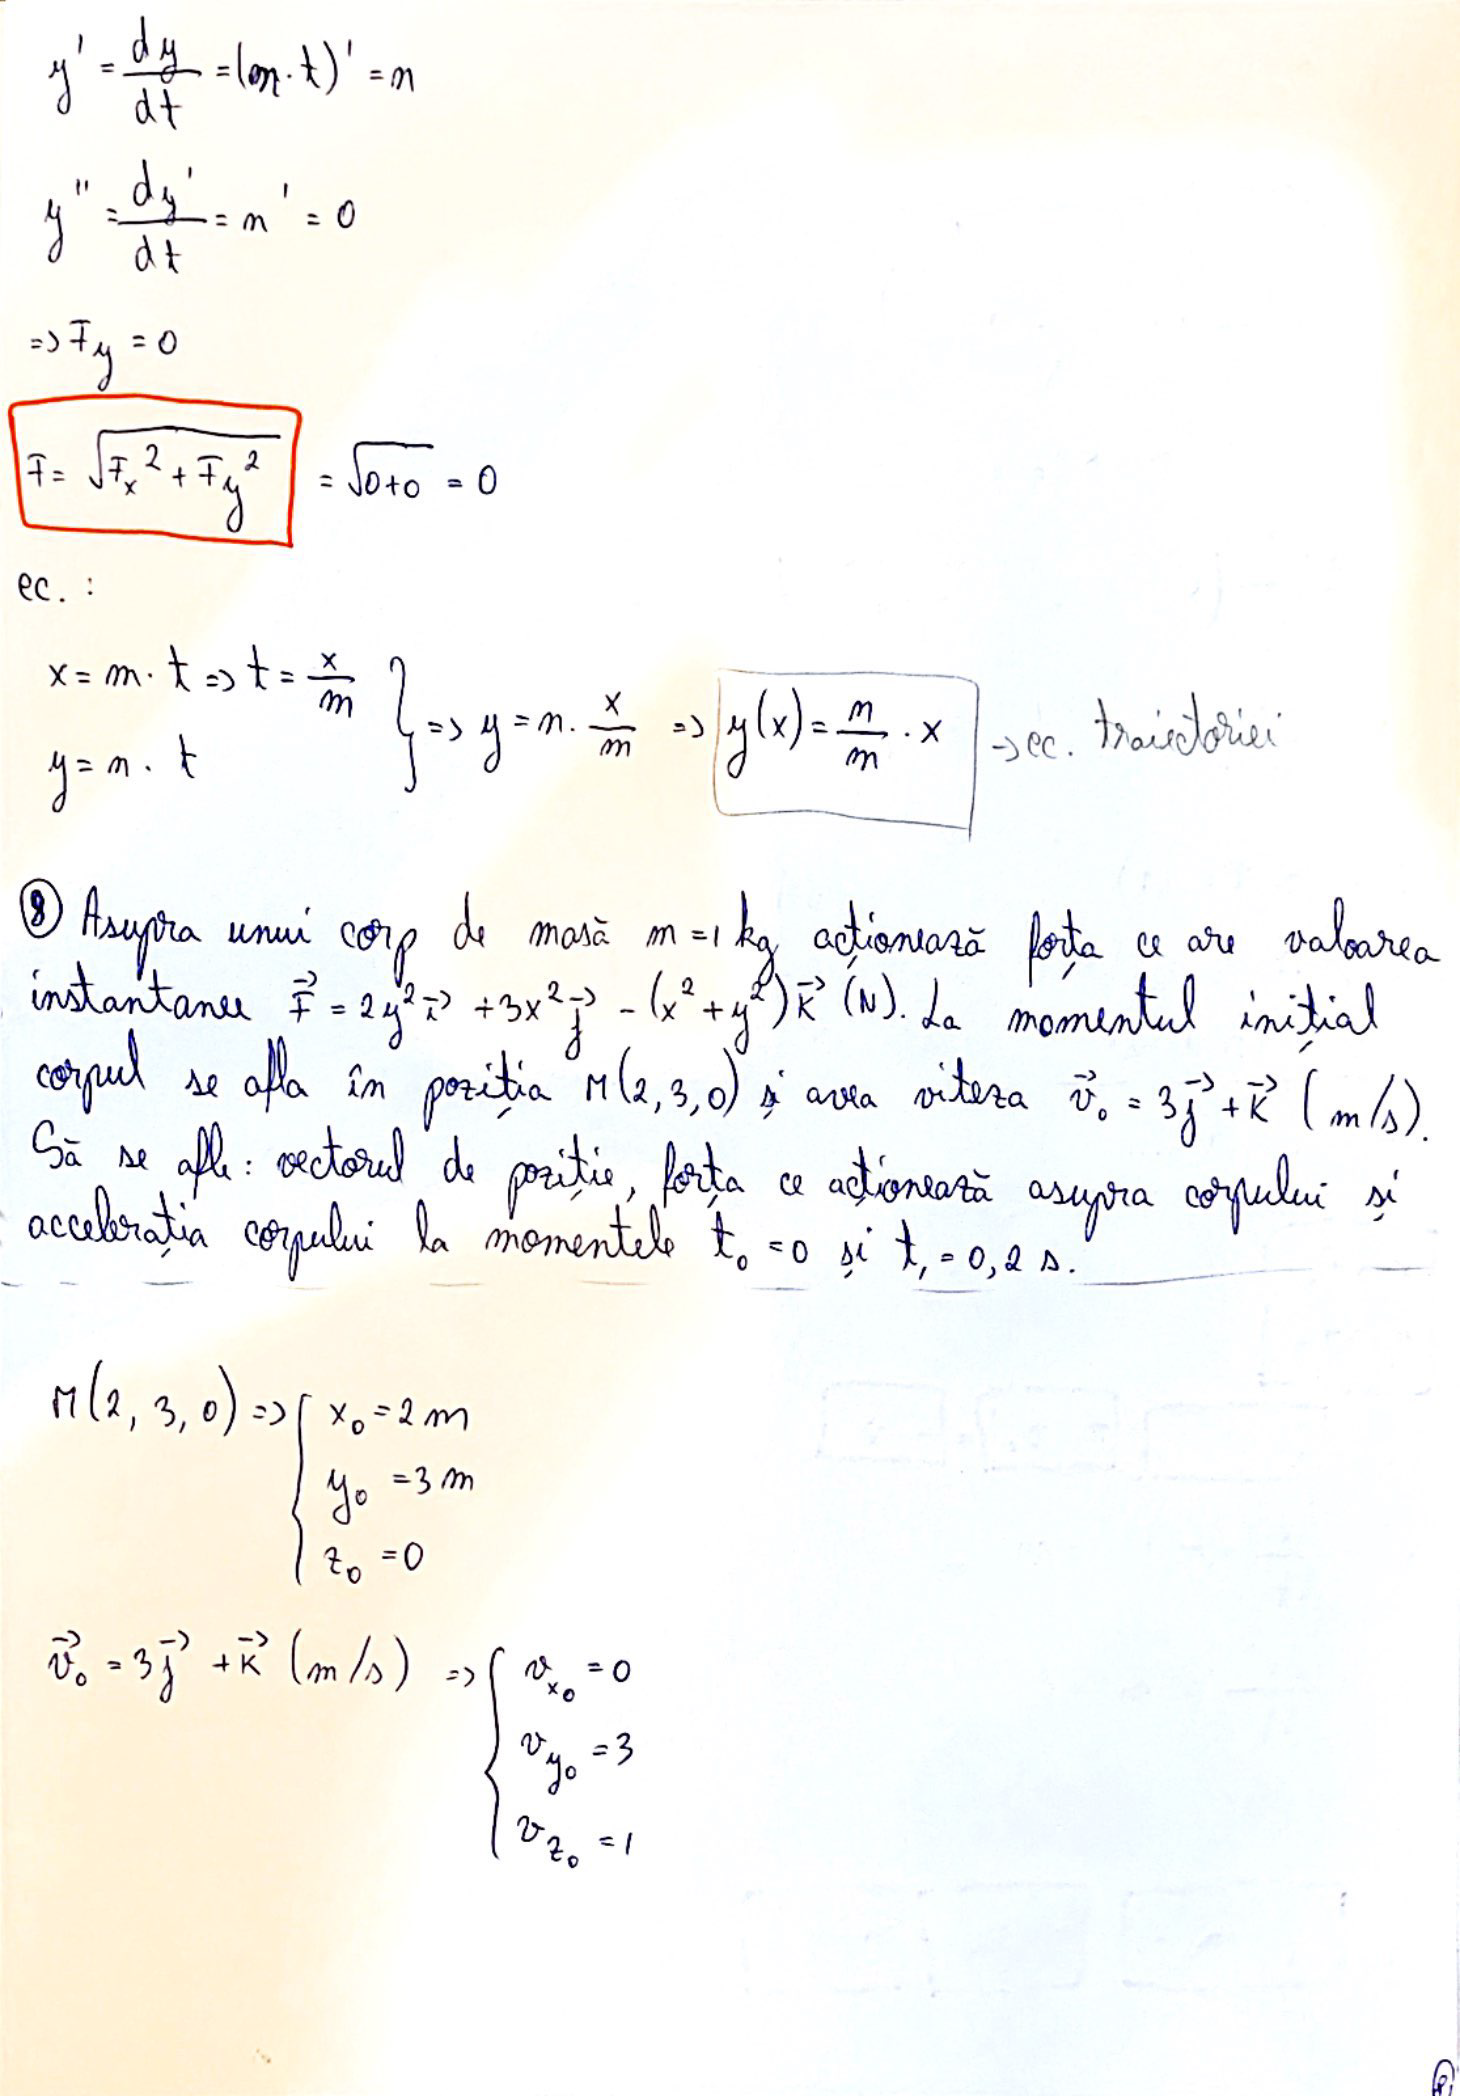 y' = dy/dt = (n·t)' = n
y'' = dy'/dt = n' = 0
=> Fy = 0
F = √(Fx² + Fy²) = √(0+0) = 0
ec. :
x = m·t => t = x/m
y = n·t
} => y = n·x/m => y(x) = n/m · x → ec. traiectoriei
⑧ Asupra unui corp de masă m = 1 kg acționează forța ce are valoarea
instantanee F⃗ = 2y² i⃗ + 3x² j⃗ - (x² + y²) k⃗ (N). La momentul inițial
corpul se afla în poziția M(2, 3, 0) și avea viteza v⃗₀ = 3j⃗ + k⃗ (m/s).
Să se afle: vectorul de poziție, forța ce acționează asupra corpului și
accelerația corpului la momentele t₀ = 0 și t₁ = 0,2 s.
M(2, 3, 0) => { x₀ = 2 m
y₀ = 3 m
z₀ = 0
v⃗₀ = 3j⃗ + k⃗ (m/s) => { vx₀ = 0
vy₀ = 3
vz₀ = 1